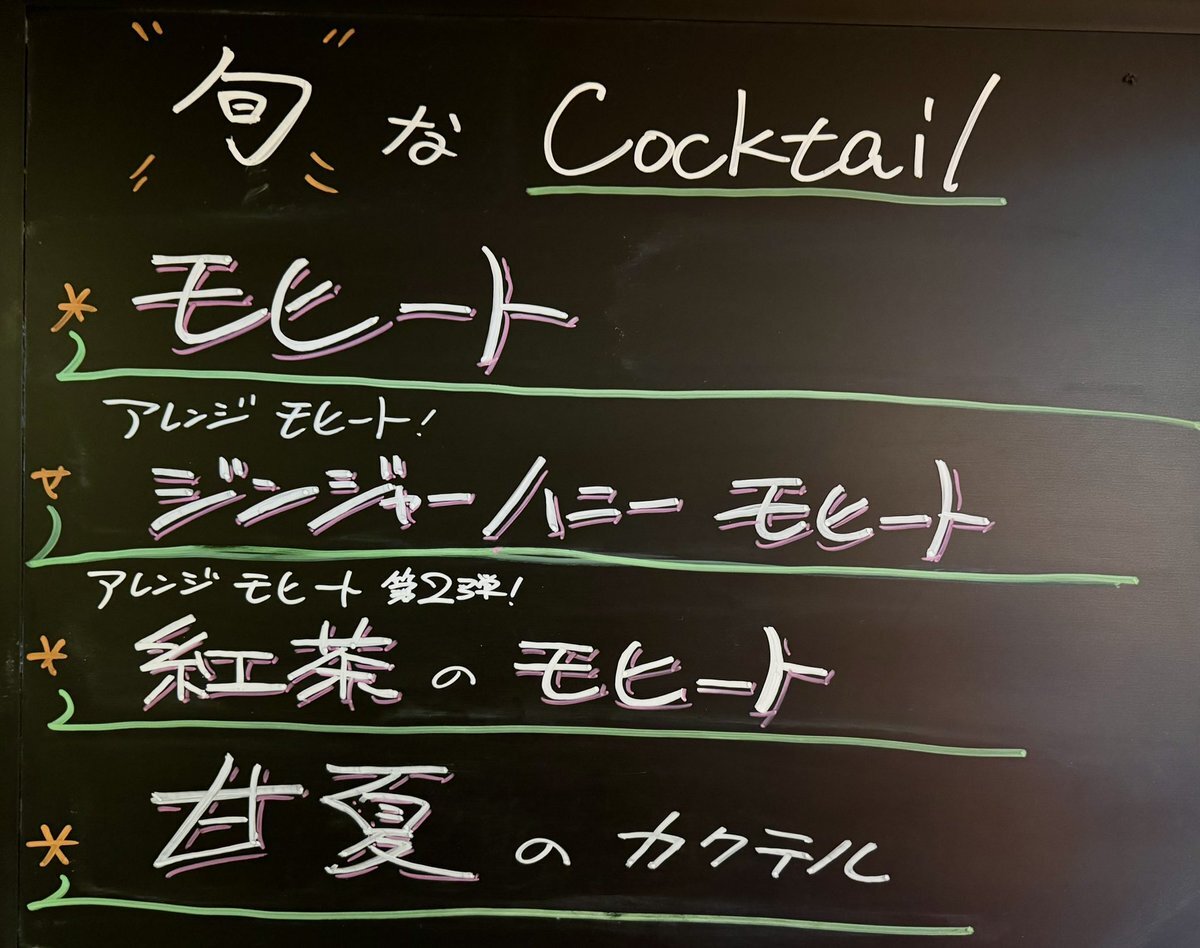 旬な Cocktail
* モヒート
アレンジ モヒート!
* ジンジャーハニー モヒート
アレンジ モヒート 第2弾!
* 紅茶の モヒート
* 甘夏の カクテル